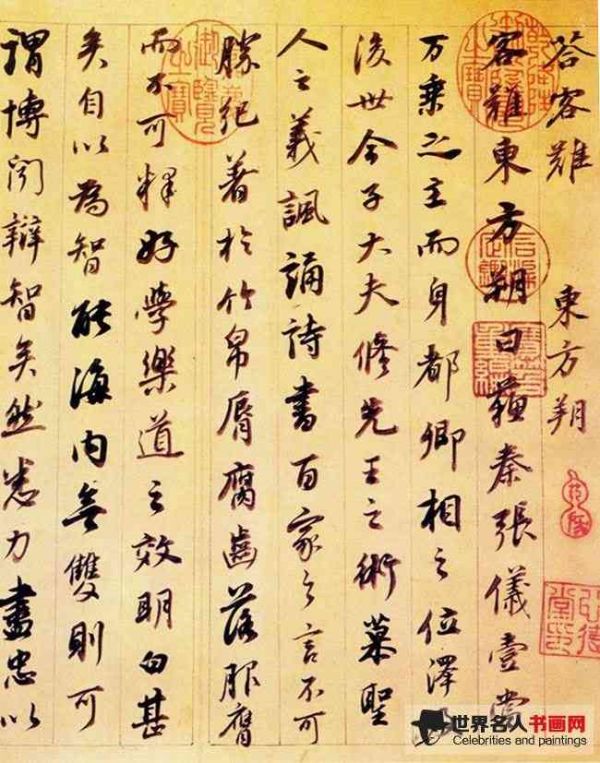 荅客難 東方朔
客難東方朔曰蘇秦張儀壹當
万乘之主而身都卿相之位澤及
後世今子大夫修先王之術慕聖
人之義諷誦詩書百家之言不可
勝紀著於竹帛脣腐齒落服膺
而不可釋好學樂道之效明白甚
矣自以為智能海内無雙則可
謂博聞辯智矣然悉力盡忠以
世界名人书画网
Celebrities and paintings